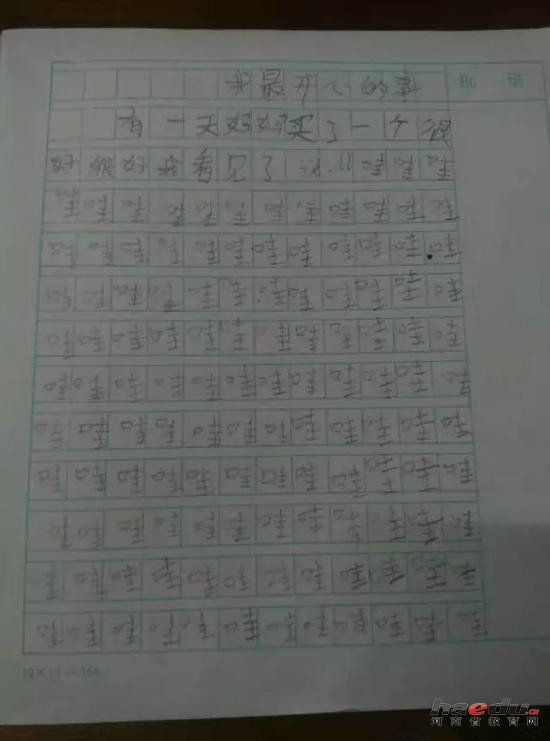 我最开心的事 批
有一天妈妈买了一个很
好很好我看见了说:“哇哇哇
哇哇哇哇哇哇哇哇哇哇哇哇
哇哇哇哇哇哇哇哇哇哇哇哇
哇哇哇哇哇哇哇哇哇哇哇哇
哇哇哇哇哇哇哇哇哇哇哇哇
哇哇哇哇哇哇哇哇哇哇哇哇
哇哇哇哇哇哇哇哇哇哇哇哇
哇哇哇哇哇哇哇哇哇哇哇哇
哇哇哇哇哇哇哇哇哇哇哇哇
哇哇哇哇哇哇哇哇哇哇哇哇
哇哇哇哇哇哇哇哇哇哇哇哇
haedu.cn
河南省教育网